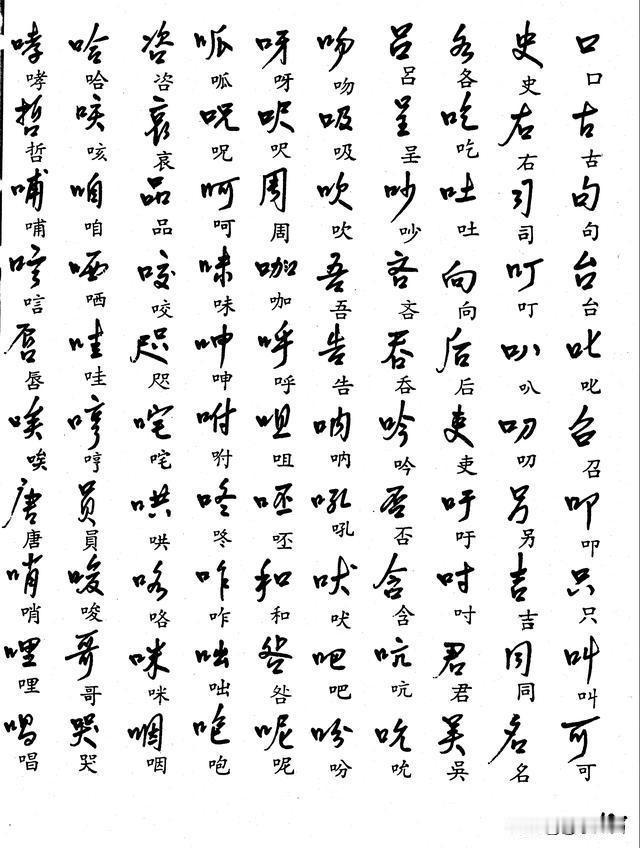 口口古古句句台台叱叱召召叩叩只只叫叫可可
史史右右司司叮叮叭叭叨叨另另吉吉同同名名
各各吃吃吐吐向向后后吏吏吁吁吋吋君君吳吳
呂呂呈呈吵吵吝吝吞吞吟吟否否含含吭吭吮吮
吻吻吸吸吹吹吾吾告告吶吶吼吼吠吠吧吧吩吩
呀呀呎呎周周咖咖呼呼咀咀呸呸和和咎咎呢呢
呱呱呪呪呵呵味味呻呻咐咐咚咚咋咋咄咄咆咆
咨咨哀哀品品咬咬咫咫咤咤哄哄咯咯咪咪咽咽
哈哈咳咳咱咱哂哂哇哇哼哼員員唆唆哥哥哭哭
哮哮哲哲哺哺唁唁唇唇唉唉唐唐哨哨哩哩唱唱